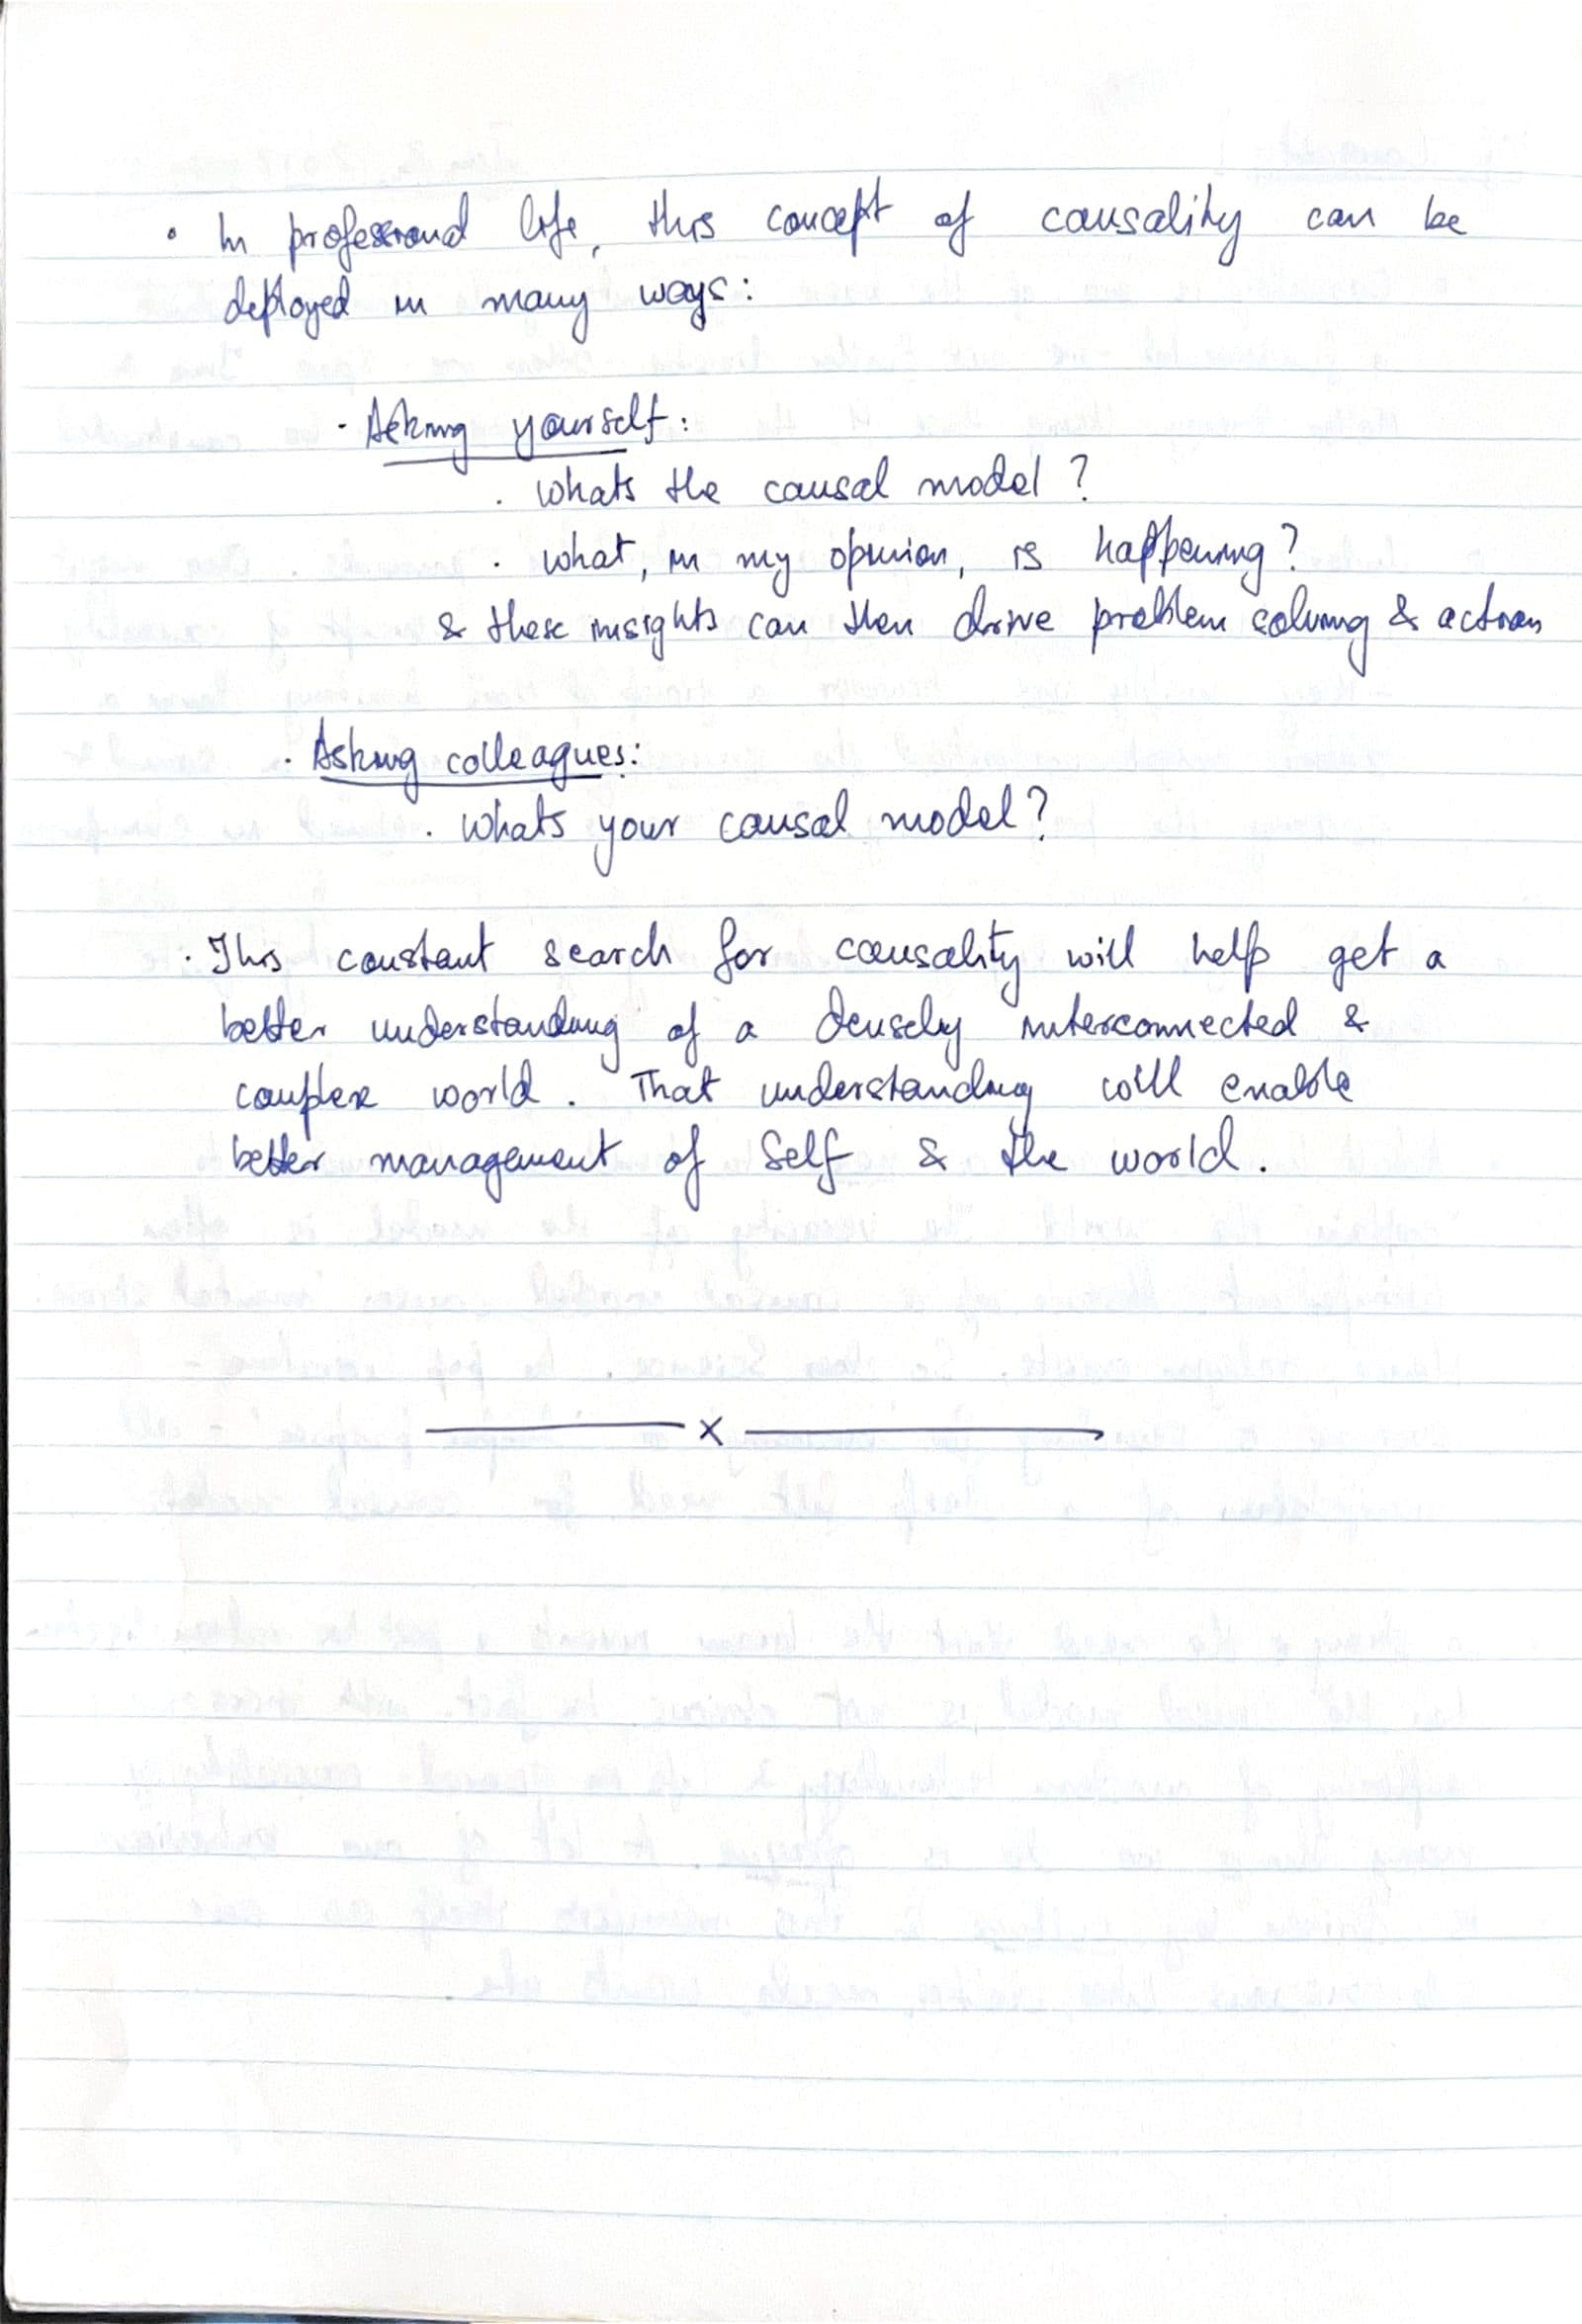 • In professional life, this concept of causality can be
deployed in many ways:
- Asking yourself:
. Whats the causal model?
. What, in my opinion, is happening?
& these insights can then drive problem solving & action
. Asking colleagues:
. Whats your causal model?
. This constant search for causality will help get a
better understanding of a densely interconnected &
complex world. That understanding will enable
better management of Self & the world.
x